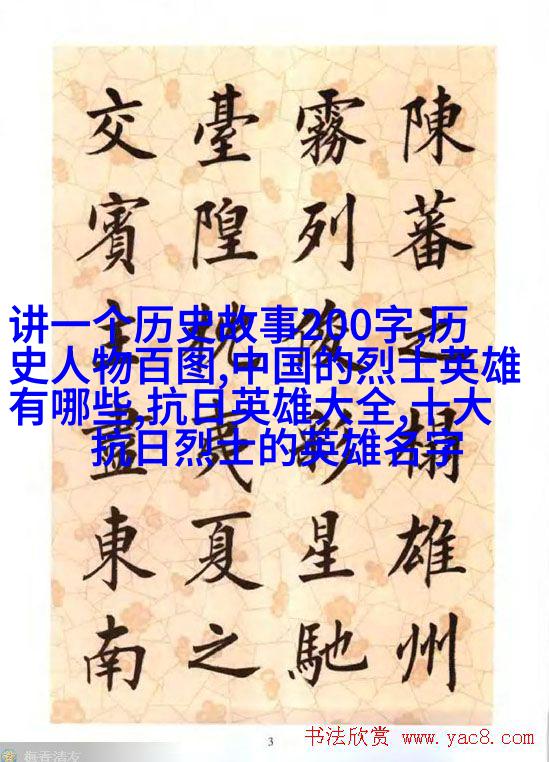 陳蕃之榻雄州
霧列俊彩星馳
臺隍枕夷夏之
交賓主盡東南
讲一个历史故事200字,历
史人物百图,中国的烈士英雄
有哪些,抗日英雄大全,十大
抗日烈士的英雄名字
3
书法欣赏 www.yac8.com
梅香清友